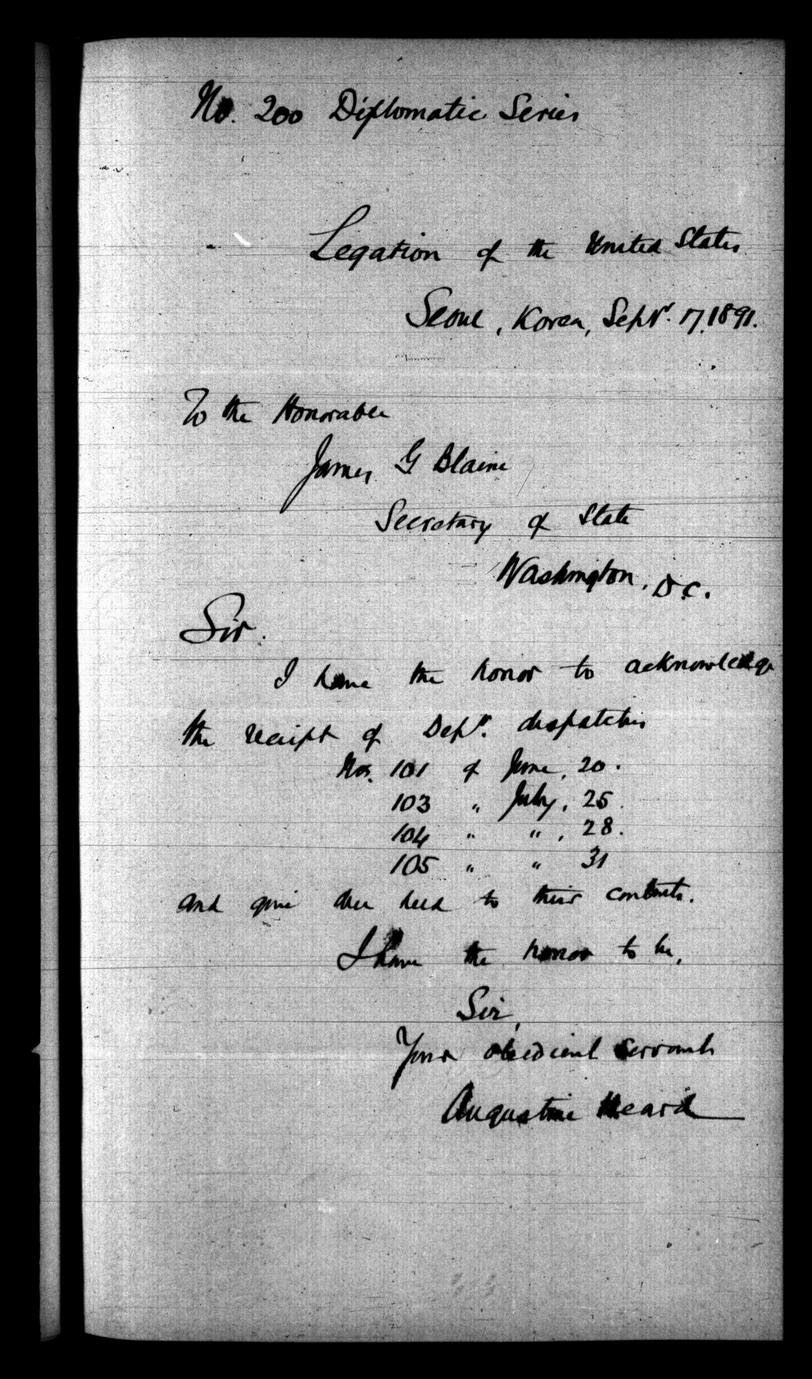 No. 200 Diplomatic Series
Legation of the United States
Seoul, Korea, Sept. 17, 1891.
To the Honorable
James G Blaine
Secretary of State
Washington, D.C.
Sir:
I have the honor to acknowledge
the receipt of Dept. dispatches
Nos. 101 of June, 20.
103 " July, 25.
104 " ", 28.
105 " " 31
and give due heed to their contents.
I have the honor to be,
Sir,
Your obedient Servant
Augustine Heard